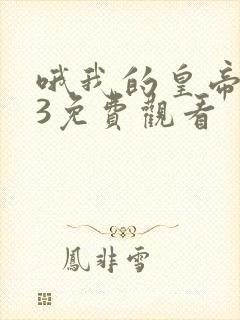 哦我的皇帝
3免費觀看
鳳非雪